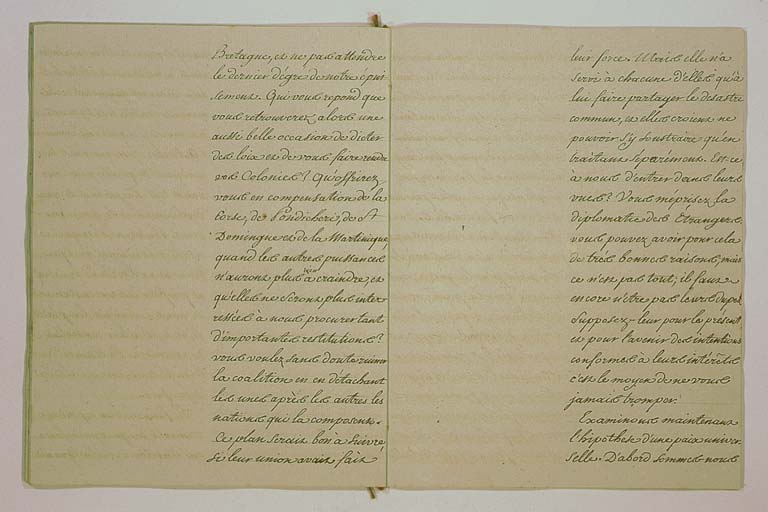 Bretagne, et ne pas attendre
le dernier dégré de notre épui
sement. Qui vous repond que
vous retrouverez, alors une
aussi belle occasion de dicter
des loix et de vous faire rendre
vos Colonies? Qu'offrirez
vous en compensation de la
Corse, de Pondicheri, de St
Domingue et de la Martinique,
quand les autres puissances
n'auront plus rien à craindre, et
qu'elles ne seront plus inter
ressées à nous procurer tant
d'importantes restitutions?
vous voulez sans doute ruiner
la coalition en en détachant
les unes après les autres les
nations qui la composent.
Ce plan serait bon à suivre
si leur union avait fait
leur force. Mais elle n'a
servi à chacune d'elles qu'à
lui faire partager le desastre
commun, et elles croient ne
pouvoir s'y soustraire qu'en
traitant séparément. Est-ce
à nous d'entrer dans leurs
vues? Vous méprisez la
diplomatie des Etrangers,
vous pouvez avoir pour cela
de très bonnes raisons, mais
ce n'est pas tout; il faut
encore n'être pas leurs dupes.
Supposez-leur pour le présent
et pour l'avenir des intentions
conformes à leurs intérêts
c'est le moyen de ne vous
jamais tromper.
Examinons maintenant
l'hipothese d'une paix univer
selle. D'abord sommes-nous